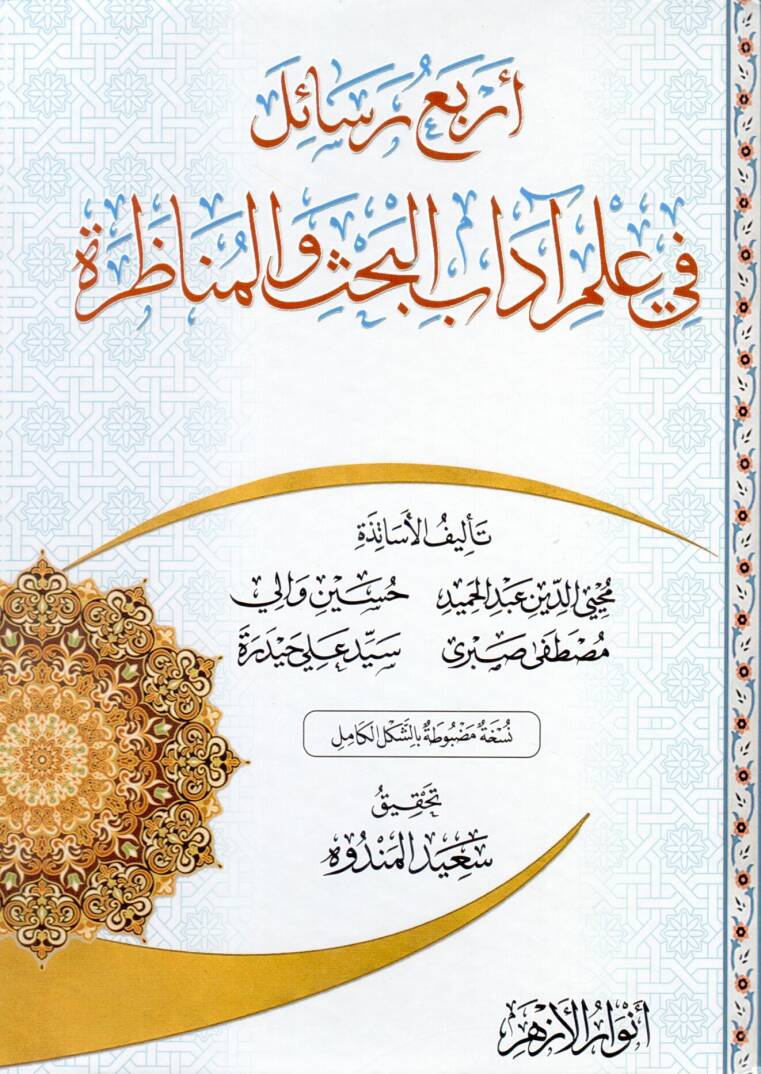 أَرْبَعُ رَسَائِلَ
فِي عِلْمِ آدَابِ الْبَحْثِ وَالْمُنَاظَرَةِ
تَأْلِيفُ الْأَسَاتِذَةِ
مُحْيِي الدِّينِ عَبْدِ الْحَمِيدِ حُسَيْنِ وَالِي
مُصْطَفَى صَبْرِى سَيِّد عَلِي حَيْدَرَةَ
نُسْخَةٌ مَضْبُوطَةٌ بِالشَّكْلِ الْكَامِلِ
تَحْقِيقُ
سَعِيد الْمَنْدُوه
أَنْوَارُ الْأَزْهَرِ